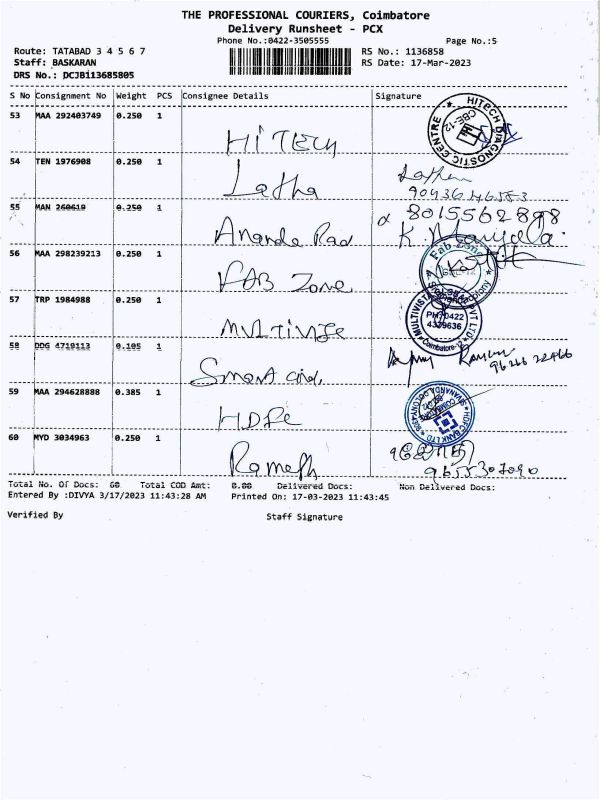 THE PROFESSIONAL COURIERS, Coimbatore
Delivery Runsheet - PCX
Phone No.:0422-3505555
Page No.:5
Route: TATABAD 3 4 5 6 7
RS No.: 1136858
Staff: BASKARAN
RS Date: 17-Mar-2023
DRS No.: DCJB113685805
S No Consignment No Weight PCS Consignee Details Signature
53 MAA 292403749 0.250 1 Hi TECH
HITECH DIAGNOSTIC CENTRE CBE-12
54 TEN 1976908 0.250 1 Latha
55 MAN 260619 0.250 1 Ananda Rao 8015562898
K. Manjula
56 MAA 298239213 0.250 1 FAB Zone
Fab Zone
57 TRP 1984988 0.250 1
MULTIVISTA PVT LTD PH:0422 4379636 Coimbatore-12
58 DDG 4719113 0.105 1 Smart
59 MAA 294628888 0.385 1 HDFC
HDFC BANK LTD
60 MYD 3034963 0.250 1 Ramesh
Total No. Of Docs: 60 Total COD Amt: 0.00 Delivered Docs: Non Delivered Docs:
Entered By :DIVYA 3/17/2023 11:43:28 AM Printed On: 17-03-2023 11:43:45
Verified By Staff Signature